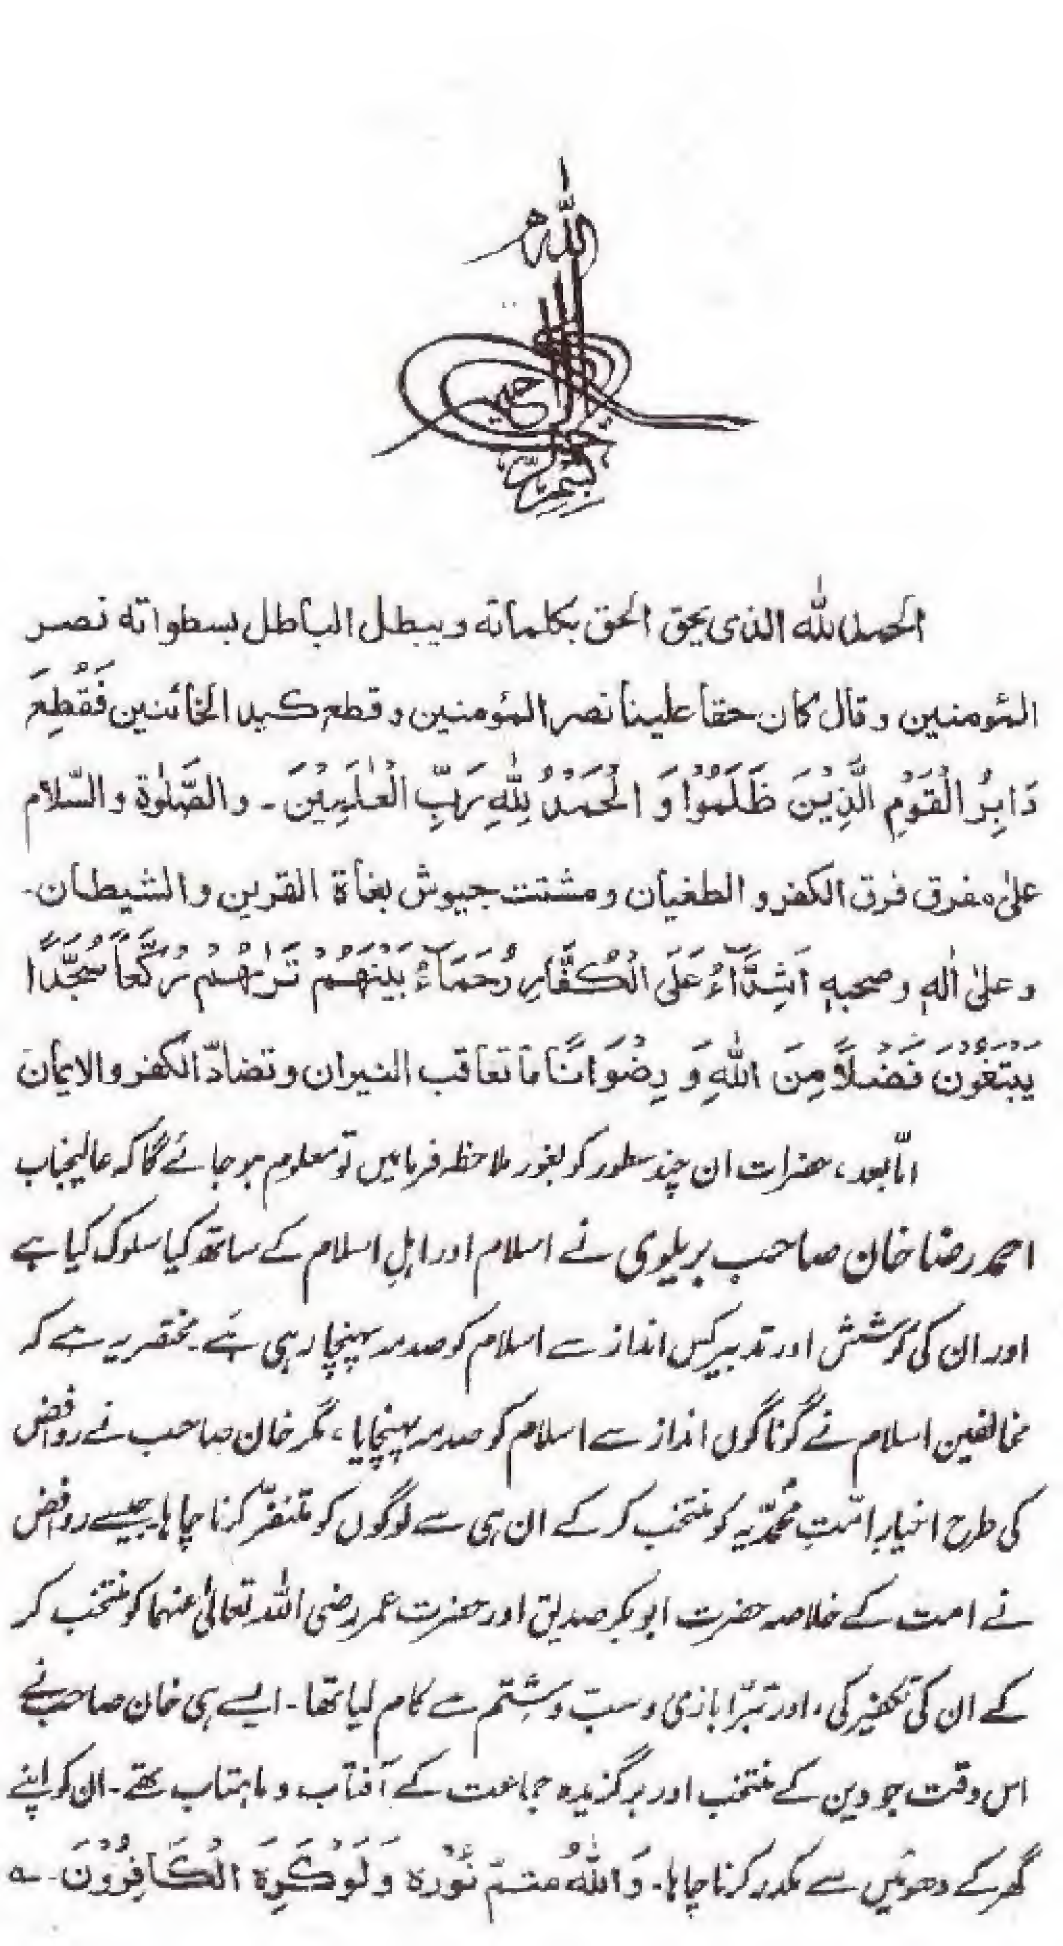 بسم الله الرحمن الرحيم
الحمد لله الذی یحق الحق بکلماته ویبطل الباطل بسطواته نصر
المؤمنین وقال کان حقا علینا نصر المؤمنین وقطع کید الخائنین فَقُطِعَ
دَابِرُ الْقَوْمِ الَّذِيْنَ ظَلَمُوْا وَ الْحَمْدُ لِلّٰهِ رَبِّ الْعٰلَمِيْنَ ۔ والصَّلٰوة والسّلام
علیٰ مفرق فرق الکفر و الطغیان ومشتت جیوش بغاة القرین والشیطان۔
وعلیٰ اٰلهٖ وصحبهٖ اَشِدَّآءُ عَلَی الْكُفَّارِ رُحَمَآءُ بَيْنَهُمْ تَرٰهُمْ رُكَّعاً سُجَّدًا
يَبْتَغُوْنَ فَضْلًا مِنَ اللهِ وَ رِضْوَانًا ما تعاقب النیران وتضادّ الکفر والایمان
امّا بعد، حضرات ان چند سطور کو بغور ملاحظہ فرمائیں تو معلوم ہو جائے گا کہ عالیجناب
احمد رضا خان صاحب بریلوی نے اسلام اور اہلِ اسلام کے ساتھ کیا سلوک کیا ہے
اور ان کی کوشش اور تدبیر کس انداز سے اسلام کو صدمہ پہنچا رہی ہے۔ مختصر یہ ہے کہ
مخالفین اسلام نے گوناگوں انداز سے اسلام کو صدمہ پہنچایا، مگر خان صاحب نے روافض
کی طرح اخیارِ امّتِ محمدّیہ کو منتخب کر کے ان ہی سے لوگوں کو متنفّر کرنا چاہا جیسے روافض
نے امت کے خلاصہ حضرت ابو بکر صدیق اور حضرت عمر رضی اللہ تعالیٰ عنہما کو منتخب کر
کے ان کی تکفیر کی، اور تبرّا بازی و سبّ و شِتم سے کام لیا تھا۔ ایسے ہی خان صاحب نے
اس وقت جو دین کے منتخب اور برگزیدہ جماعت کے آفتاب و ماہتاب تھے۔ ان کو اپنے
گھر کے دھوئیں سے مکدر کرنا چاہا۔ وَاللهُ متمّ نُوْره وَلَوْ كَرِهَ الْكَافِرُوْنَ۔